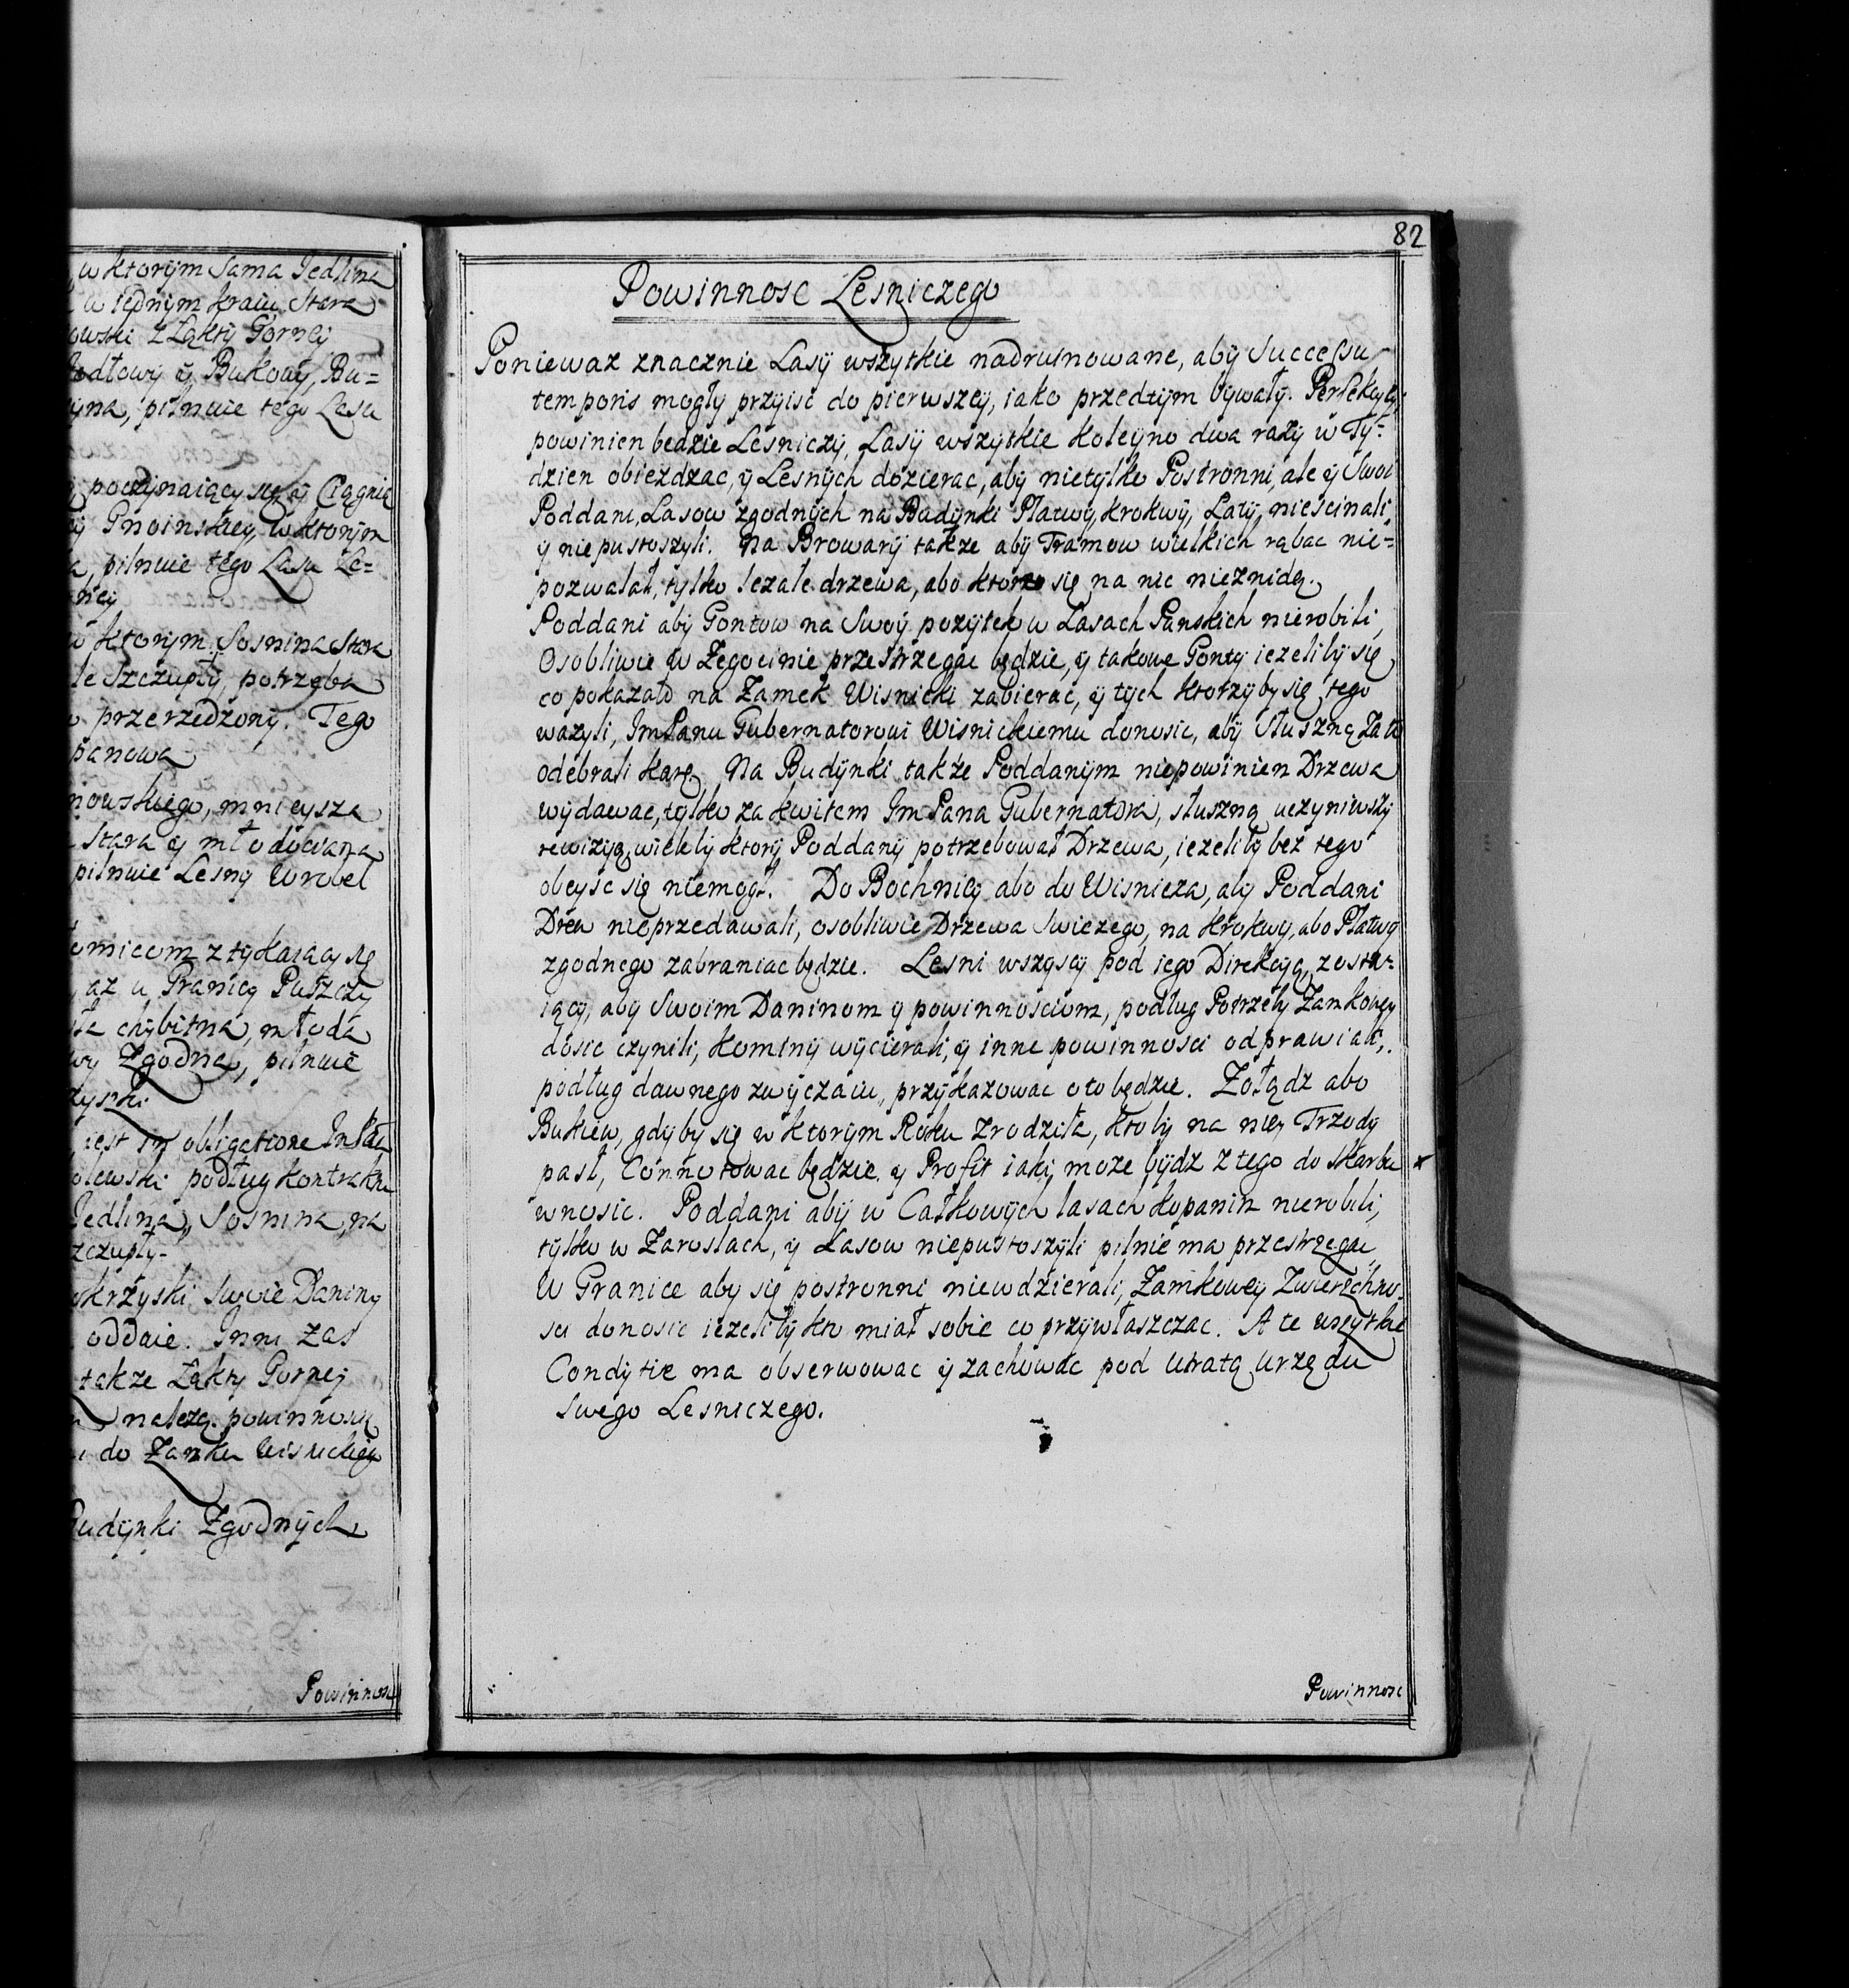 w ktorym Sama Jedlina
w iednym kraiu Stara
owski z Łąkty Gornej
Jodłowy y Bukowy, Bu=
yna, pilnuie tego Lasu
poczynaiący się y Ciągnie
y Gnoinskiey, w ktorym
pilnuie tego Lasu Le=
ney
w ktorym Sosnina Stara
le szczupły, potrzeba
przerzedzony. Tego
panowa
nowskiego, mnieysza
Stara y młodociana
pilnuie Lesny Wrobel
omicom ztykaiący się
az u Granicy Puszczy
chybitna, młoda
wy Zgodna, pilnuie
zyski
iest in obligatione
olewski podług Kontraktu
Jedlina, Sosnina, na
zczupły.
skrzyski Swoie Daniny
oddaie. Inni zas
takze Łąkty Gornej
nalezą powinnosci
do Zamku Wisnickiego
Budynki Zgodnych
Powinnosc
82
Powinnosc Lesniczego
Poniewaz znacznie Lasy wszytkie nadruinowane, aby Successu
temporis mogły przyisc do pierwszey, iako przedtym bywały. Perfekcyi,
powinien będzie Lesniczy, Lasy wszytkie koleyno dwa razy w Ty=
dzien obiezdzac, y Lesnych dozierac, aby nietylko Postronni, ale y Swoi
Poddani, Lasow zgodnych na Budynki Płatwy, krokwy, Łaty, niescinali,
y niepustoszyli. Na Browary takze aby Tramow wielkich rąbac nie=
pozwalał, tylko lezałe drzewa, abo ktore się na nic nieznidą.
Poddani aby Gontow na Swoy pozytek w Lasach Panskich nierobili,
Osobliwie w Zegocinie przestrzegac będzie, y takowe Gonty iezeliby się
co pokazało na Zamek Wisnicki zabierac, y tych ktorzyby się tego
wazyli, ImPanu Gubernatorowi Wisnickiemu donosic, aby słuszną za to
odebrali karę. Na Budynki takze Poddanym niepowinien Drzewa
wydawac, tylko za kwitem ImPana Gubernatora, słuszną uczyniwszy
rewizyą, wieleby ktory Poddany potrzebował Drzewa, iezeliby bez tego
obeysc się niemogł. Do Bochnicy abo do Wisnicza, aby Poddani
Drew nieprzedawali, osobliwie Drzewa Swiezego, na krokwy, abo Płatwy
zgodnego zabraniac będzie. Lesni wszyscy pod iego Direkcyą, zosta=
iący, aby Swoim Daninom y powinnosciom, podług Potrzeby Zamkowey
dosic czynili, kominy wycierali, y inne powinnosci odprawiali,
podług dawnego zwyczaiu, przykazowac o to będzie. Zołądz abo
Bukiew, gdyby się w ktorym Roku zrodziła, ktoby na niey Trzody
pasł, Connotowac będzie y Profit iaki moze bydz z tego do Skarbu *
wnosic. Poddani aby w Całkowych lasach kopanin nierobili,
tylko w Zaroslach, y Lasow niepustoszyli pilnie ma przestrzegac
W Granice aby się postronni niewdzierali, Zamkowey Zwierzchno=
sci donosic iezeliby kto miał sobie co przywłaszczac. A te wszytkie
Condytie ma obserwowac y zachowac pod utratą urzędu
Swego Lesniczego.
Powinnosc